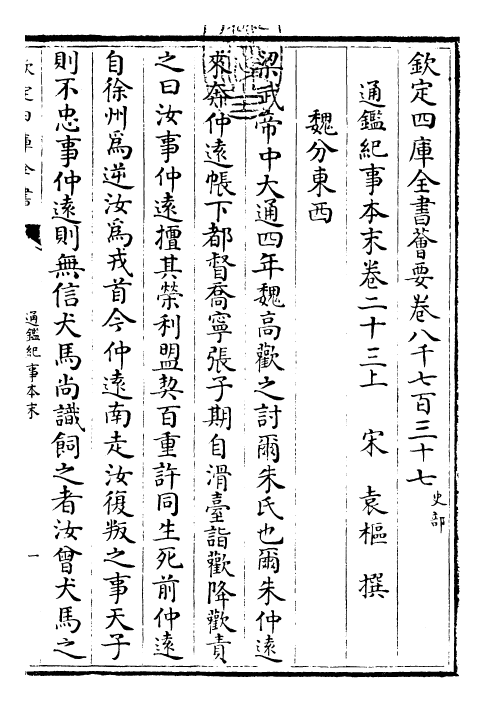 欽定四庫全書薈要卷八千七百三十七 史部
通鑑紀事本末卷二十三上 宋 袁樞 撰
魏分東西
梁武帝中大通四年魏高歡之討爾朱氏也爾朱仲遠
來奔仲遠帳下都督喬寧張子期自滑臺詣歡降歡責
之曰汝事仲遠擅其榮利盟契百重許同生死前仲遠
自徐州爲逆汝爲戎首今仲遠南走汝復叛之事天子
則不忠事仲遠則無信犬馬尚識飼之者汝曾犬馬之
欽定四庫全書
通鑑紀事本末
一